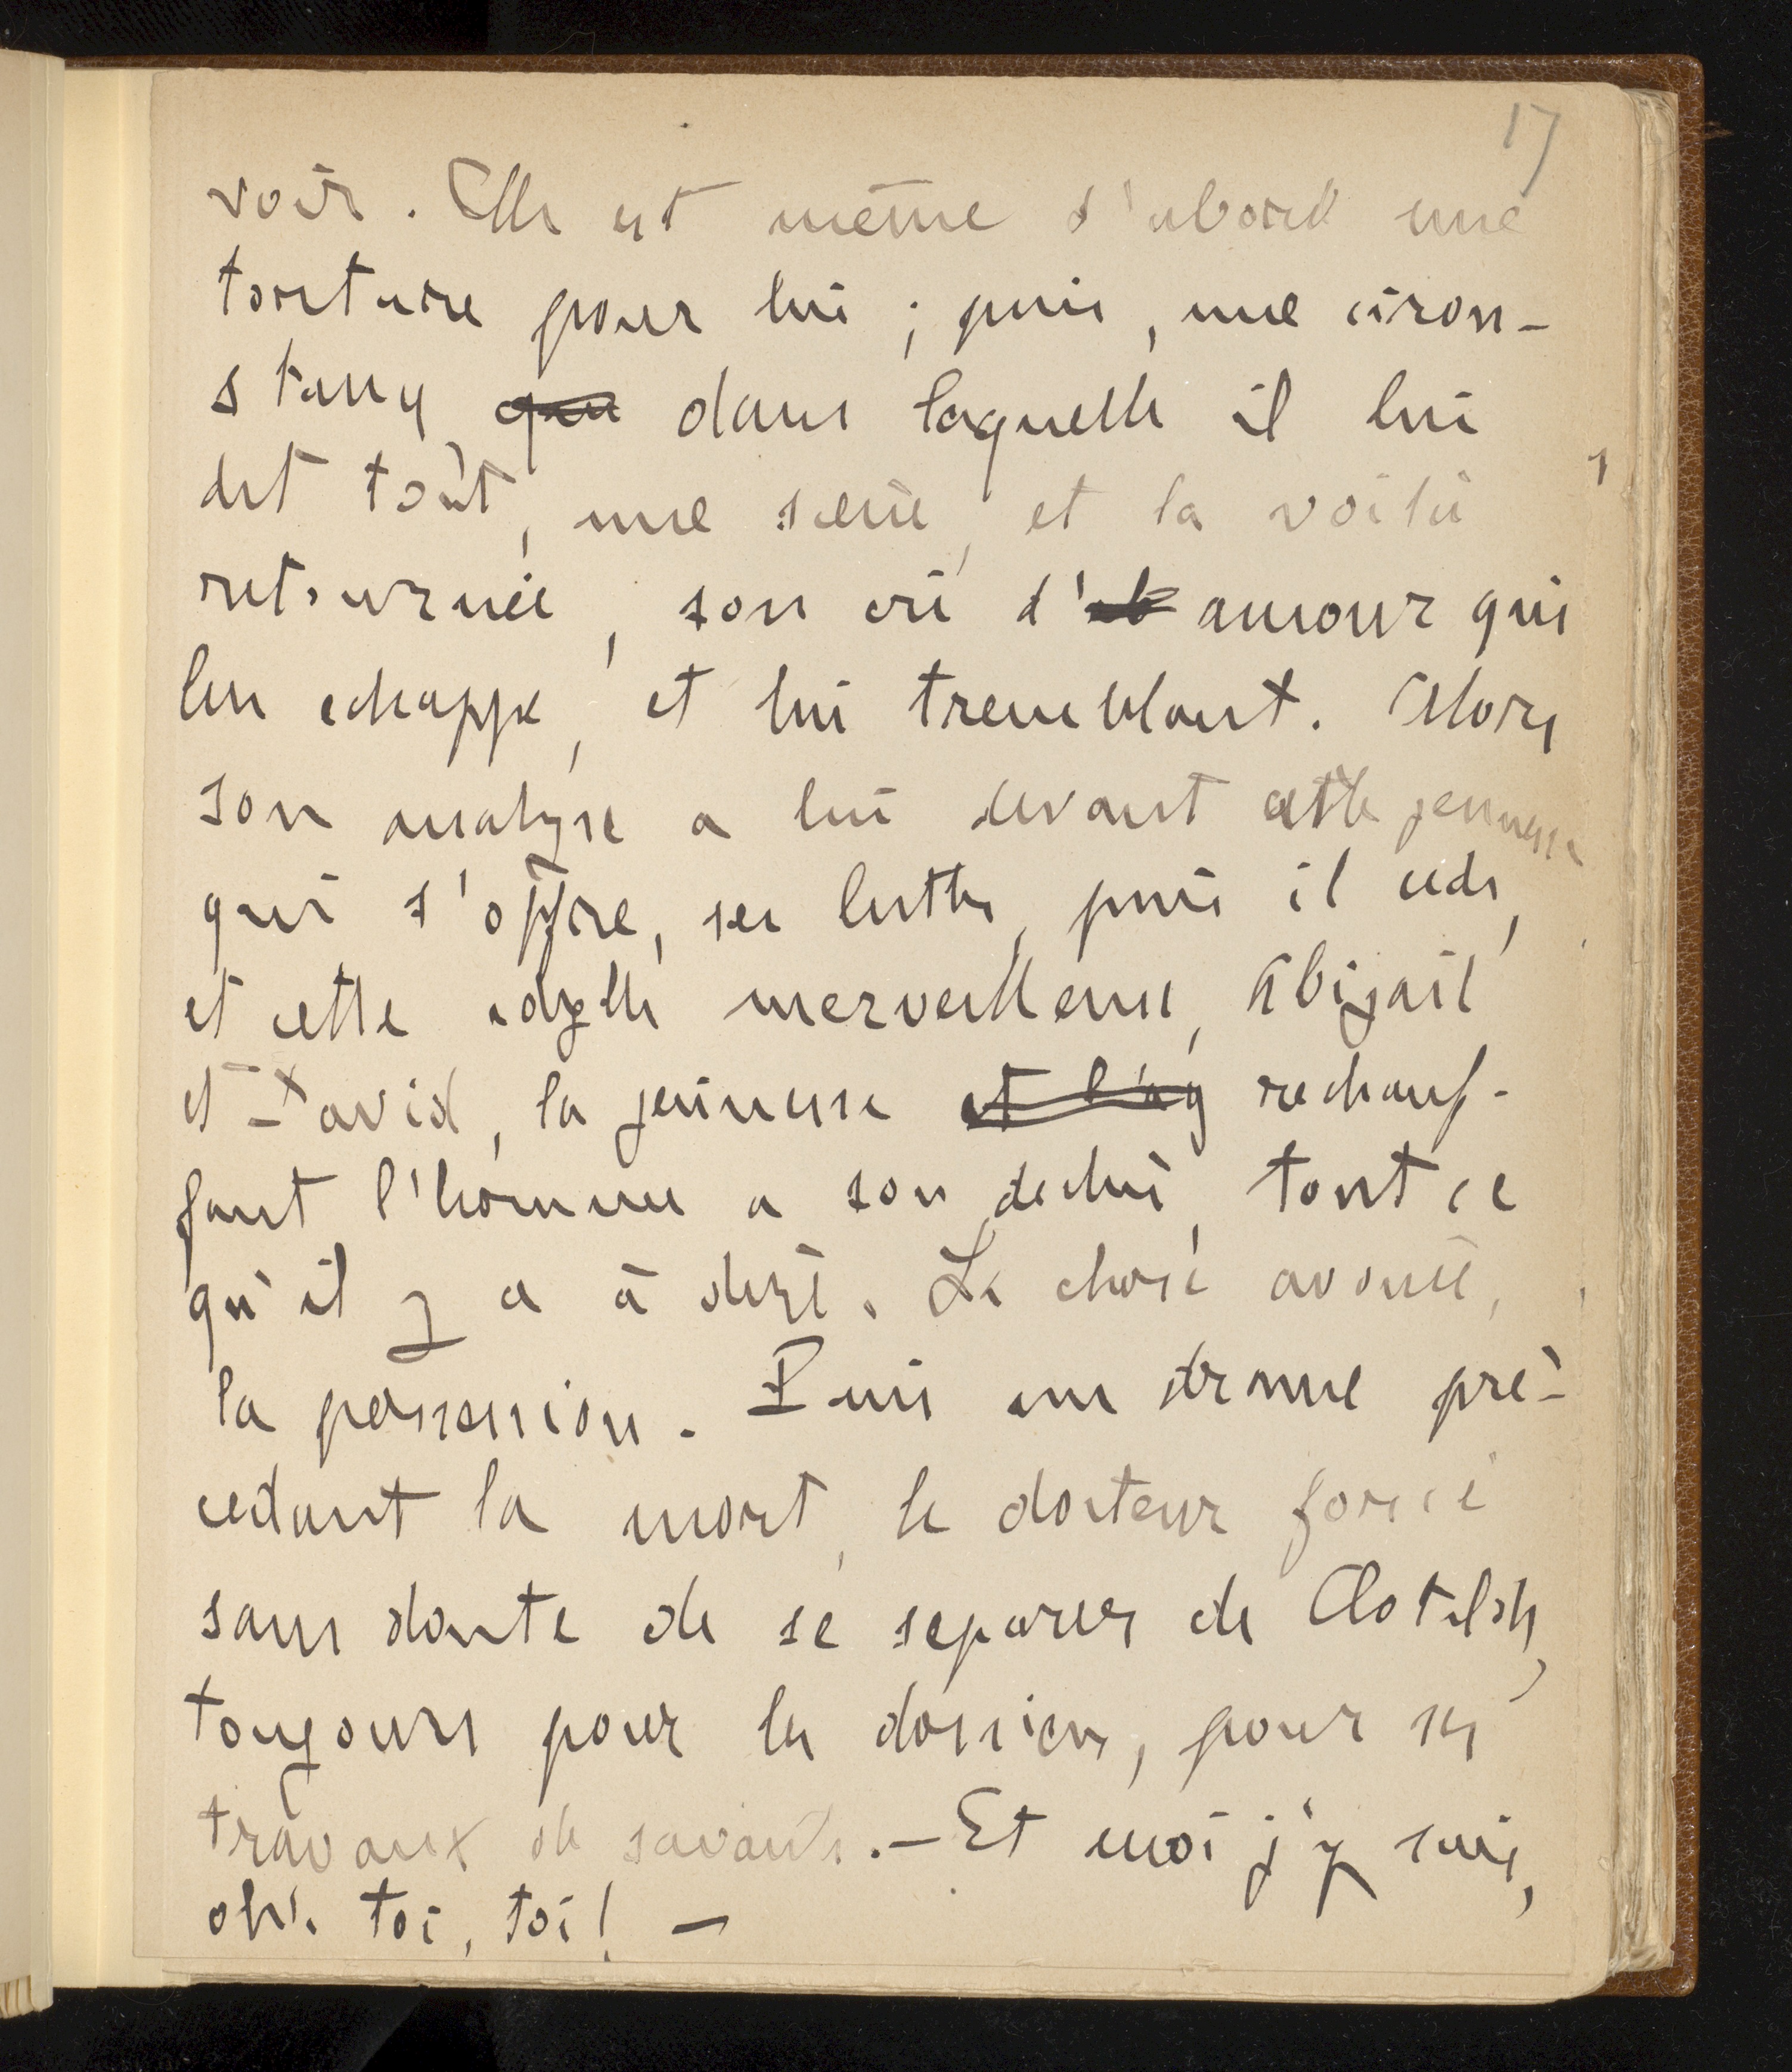 17
voir. Elle est même d'abord une
torture pour lui ; puis, une circon-
stance que dans laquelle il lui
dit tout, une scène, et la voilà
retournée, son cri d' amour qui
lui échappe, et lui tremblant. Alors
son analyse a lui devant cette jeunesse
qui s'offre, ses luttes, puis il cède,
et cette idylle merveilleuse, Abigaïl
et David, la jeunesse et l'âg réchauf-
fant l'homme a son déclin, tout ce
qu'il y a à dire. La chose avouée,
la possession. Puis un drame pré-
cédant la mort, le docteur forcé
sans doute de se séparer de Clotilde,
toujours pour les dossiers, pour ses
travaux de savants. — Et moi j'y suis,
oh! toi, toi! —